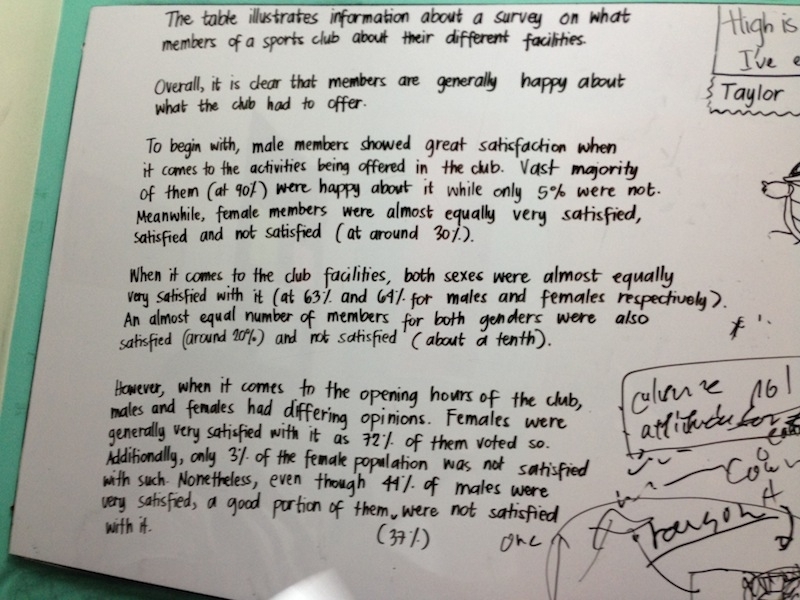 The table illustrates information about a survey on what
members of a sports club about their different facilities.
Overall, it is clear that members are generally happy about
what the club had to offer.
To begin with, male members showed great satisfaction when
it comes to the activities being offered in the club. Vast majority
of them (at 90%) were happy about it while only 5% were not.
Meanwhile, female members were almost equally very satisfied,
satisfied and not satisfied (at around 30%).
When it comes to the club facilities, both sexes were almost equally
very satisfied with it (at 63% and 64% for males and females respectively).
An almost equal number of members for both genders were also
satisfied (around 20%) and not satisfied (about a tenth).
However, when it comes to the opening hours of the club,
males and females had differing opinions. Females were
generally very satisfied with it as 72% of them voted so.
Additionally, only 3% of the female population was not satisfied
with such. Nonetheless, even though 44% of males were
very satisfied, a good portion of them were not satisfied
with it.
(37%)
one
High is
I've e
Taylor